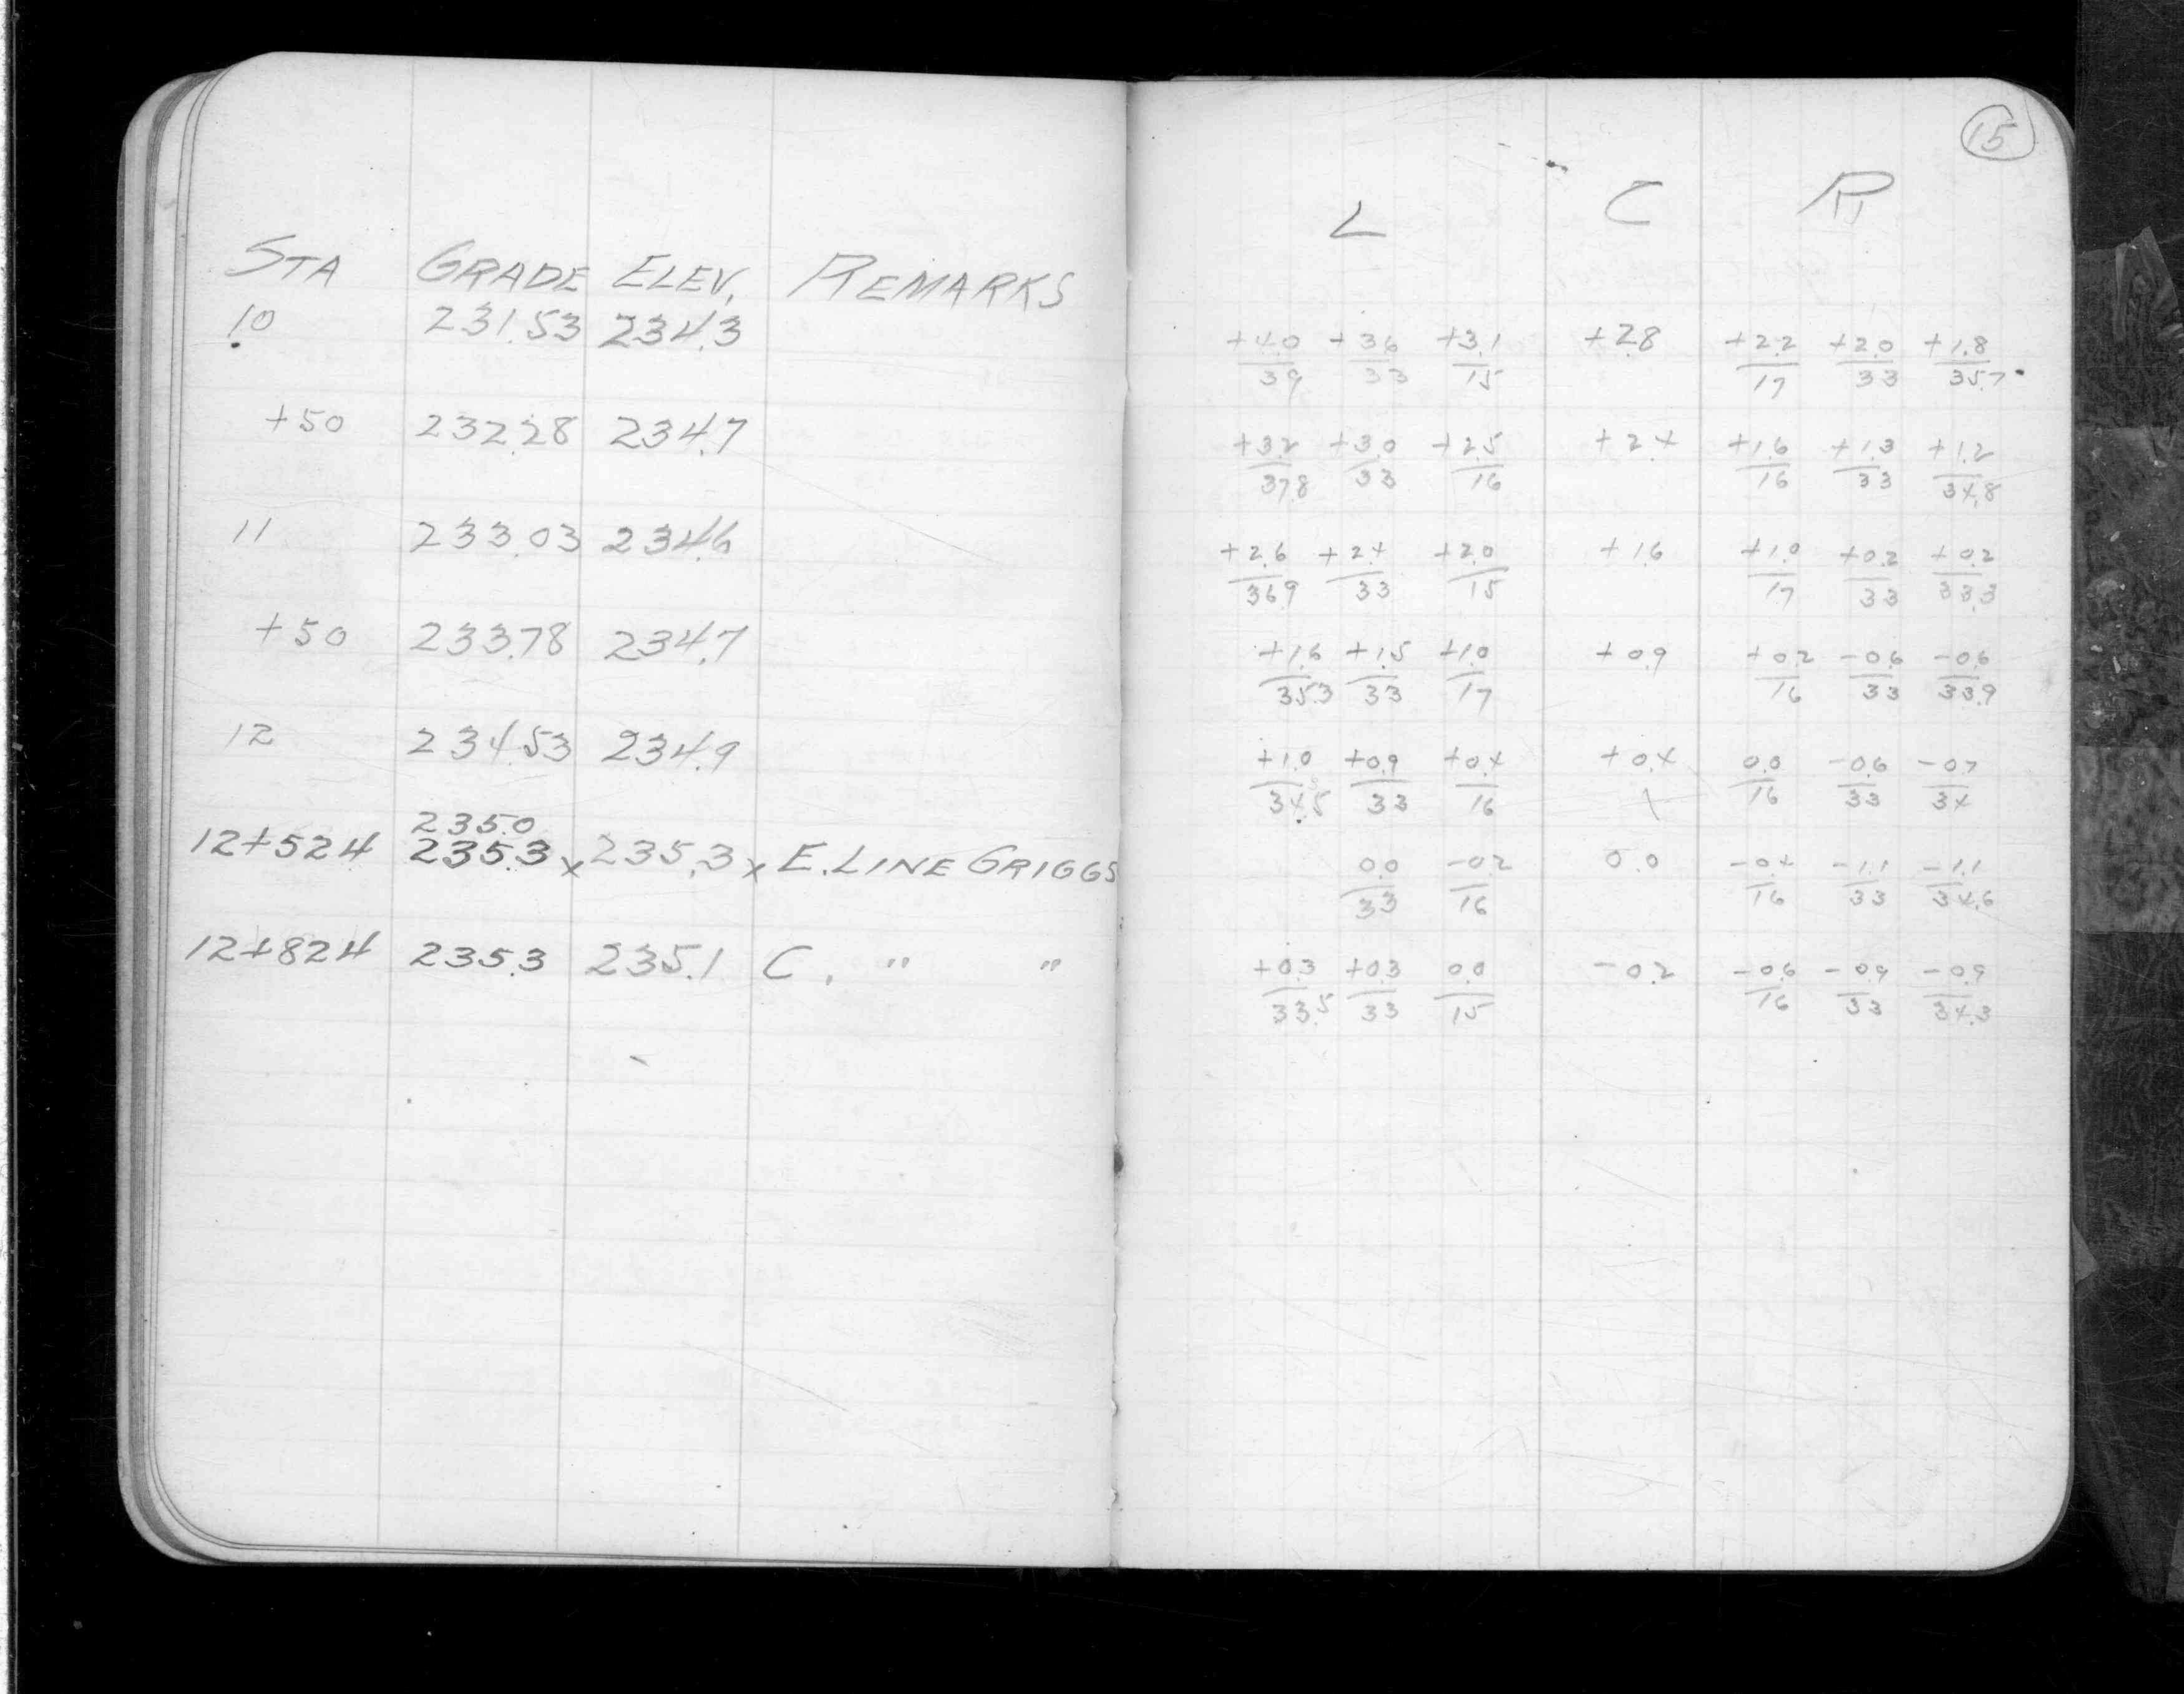 STA GRADE ELEV. REMARKS
10 231.53 234.3
+50 232.28 234.7
11 233.03 234.6
+50 233.78 234.7
12 234.53 234.9
235.0
12+524 235.3 x 235.3 x E. LINE GRIGGS
12+824 235.3 235.1 C. " "
15
L C R
+4.0 +3.6 +3.1 +2.8 +2.2 +2.0 +1.8
39 33 15 17 33 35.7
+3.2 +3.0 +2.5 +2.4 +1.6 +1.3 +1.2
37.8 33 16 16 33 34.8
+2.6 +2.4 +2.0 +1.6 +1.0 +0.2 +0.2
36.9 33 15 17 33 33.3
+1.6 +1.5 +1.0 +0.9 +0.2 -0.6 -0.6
35.3 33 17 16 33 33.9
+1.0 +0.9 +0.4 +0.4 0.0 -0.6 -0.7
34.5 33 16 16 33 34
0.0 -0.2 0.0 -0.4 -1.1 -1.1
33 16 16 33 34.6
+0.3 +0.3 0.0 -0.2 -0.6 -0.9 -0.9
33.5 33 15 16 33 34.3